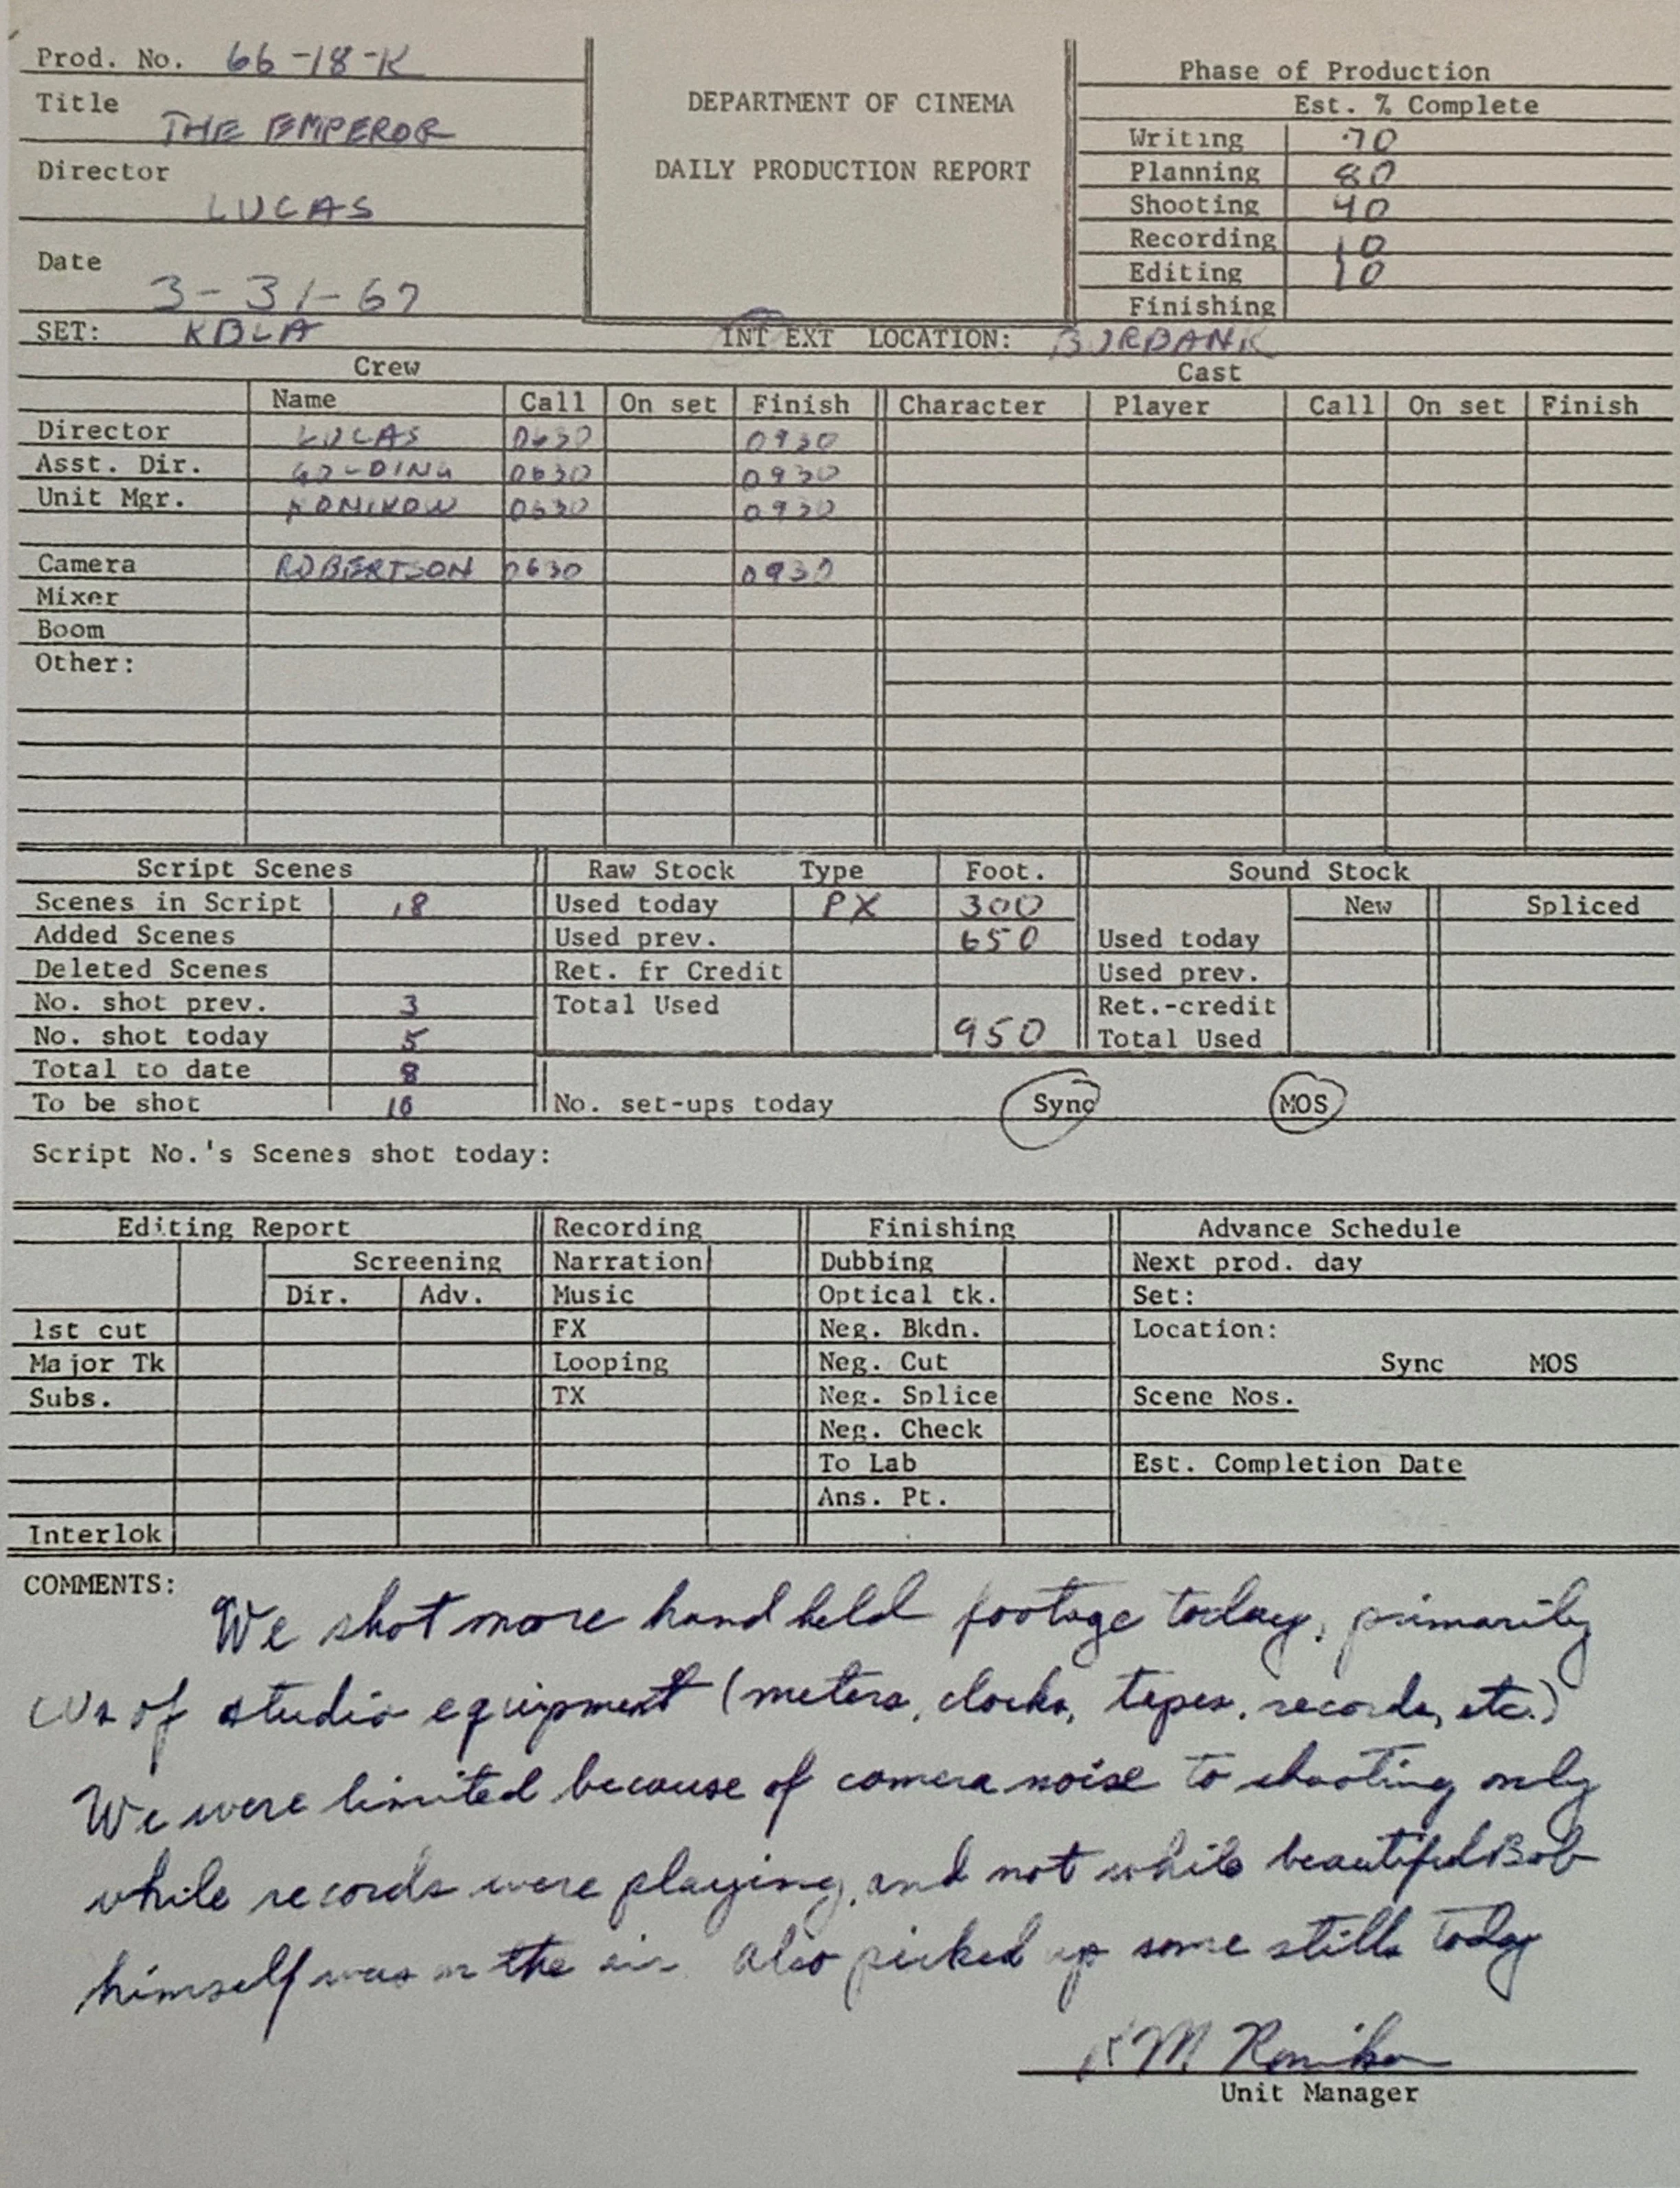 Prod. No. 66-18-K
Title THE EMPEROR
Director LUCAS
Date 3-31-67
DEPARTMENT OF CINEMA
DAILY PRODUCTION REPORT
Phase of Production
Est. % Complete
Writing 70
Planning 80
Shooting 40
Recording 10
Editing 10
Finishing
SET: KBLA INT EXT LOCATION: BURBANK
Crew Cast
Name Call On set Finish Character Player Call On set Finish
Director LUCAS 0630 0930
Asst. Dir. GOLDING 0630 0930
Unit Mgr. 0630 0930
Camera ROBERTSON 0630 0930
Mixer
Boom
Other:
Script Scenes
Scenes in Script 18
Added Scenes
Deleted Scenes
No. shot prev. 3
No. shot today 5
Total to date 8
To be shot 10
Raw Stock Type Foot.
Used today PX 300
Used prev. 650
Ret. fr Credit
Total Used
950
Sound Stock
New Spliced
Used today
Used prev.
Ret.-credit
Total Used
No. set-ups today Sync MOS
Script No.'s Scenes shot today:
Editing Report
Screening
Dir. Adv.
1st cut
Major Tk
Subs.
Interlok
Recording
Narration
Music
FX
Looping
TX
Finishing
Dubbing
Optical tk.
Neg. Bkdn.
Neg. Cut
Neg. Splice
Neg. Check
To Lab
Ans. Pt.
Advance Schedule
Next prod. day
Set:
Location:
Sync MOS
Scene Nos.
Est. Completion Date
COMMENTS:
We shot more hand held footage today, primarily
CUs of studio equipment (meters, clocks, tapes, records, etc.)
We were limited because of camera noise to shooting only
while records were playing, and not while beautiful Bob
himself was on the air. Also picked up some stills today
Unit Manager